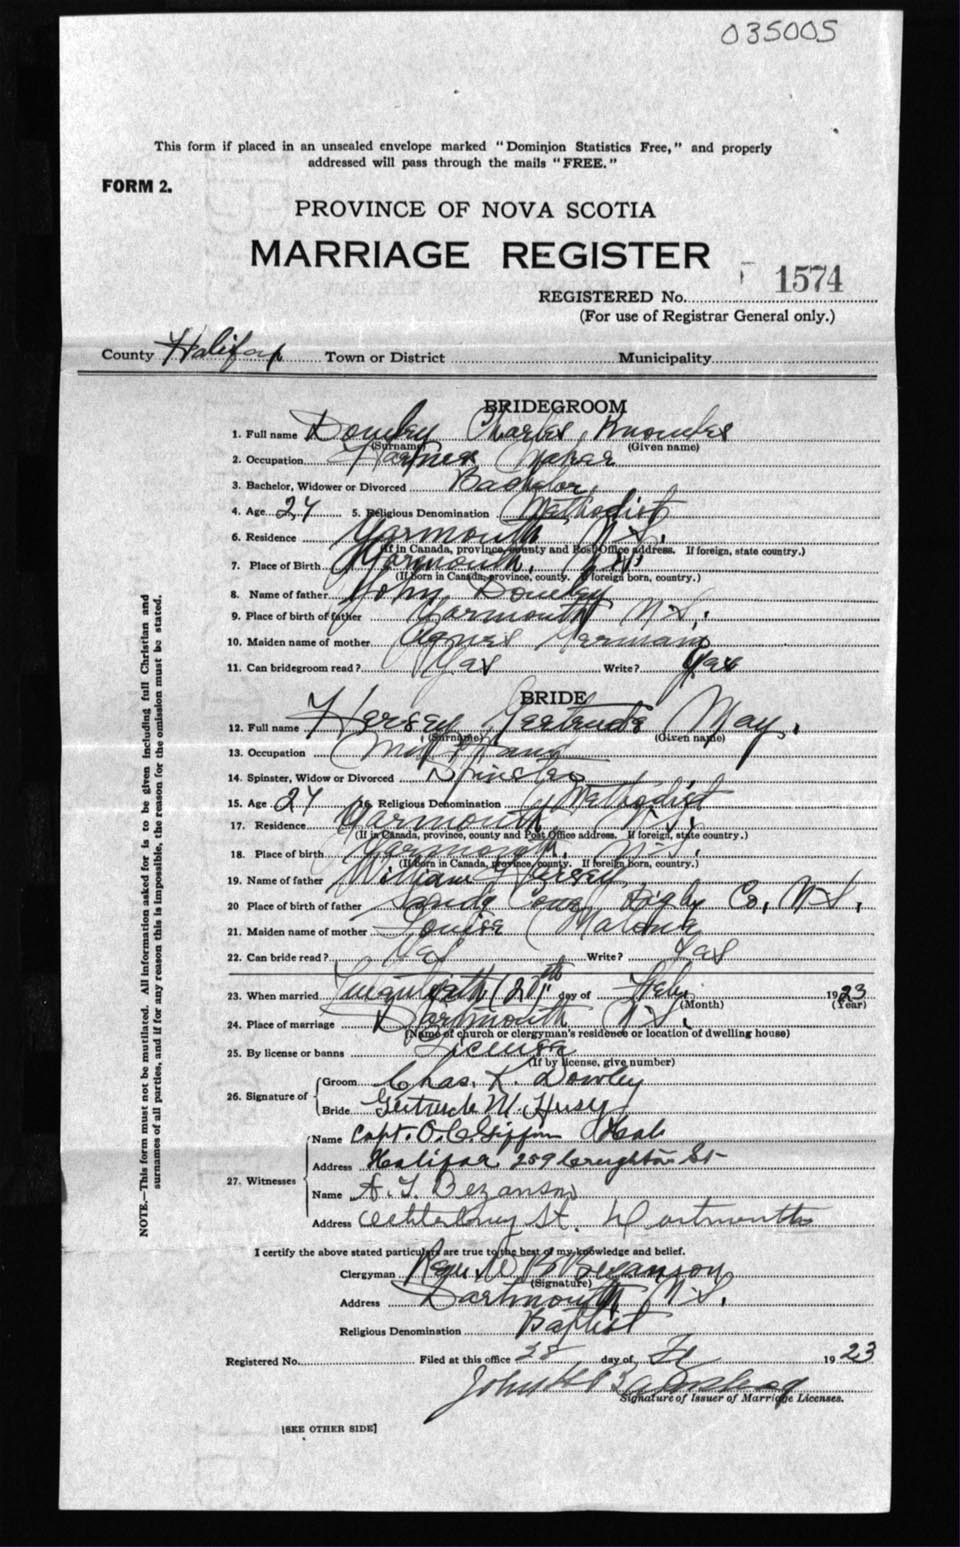 035005
This form if placed in an unsealed envelope marked "Dominion Statistics Free," and properly
addressed will pass through the mails "FREE."
FORM 2.
PROVINCE OF NOVA SCOTIA
MARRIAGE REGISTER
REGISTERED No. 1574
(For use of Registrar General only.)
County Halifax Town or District Municipality
BRIDEGROOM
1. Full name Dowley Charles Knowles
(Surname) (Given name)
2. Occupation Harness Maker
3. Bachelor, Widower or Divorced Bachelor
4. Age 24 5. Religious Denomination Methodist
6. Residence Yarmouth N.S.
(If in Canada, province, county and Post Office address. If foreign, state country.)
7. Place of Birth Yarmouth, N.S.
(If born in Canada, province, county. If foreign born, country.)
8. Name of father John Dowley
9. Place of birth of father Yarmouth N.S.
10. Maiden name of mother Agnes German
11. Can bridegroom read? Yas Write? Yas
BRIDE
12. Full name Hersey Gertrude May.
(Surname) (Given name)
13. Occupation Mill Hand
14. Spinster, Widow or Divorced Spinster
15. Age 24 16. Religious Denomination Methodist
17. Residence Yarmouth, N.S.
(If in Canada, province, county and Post Office address. If foreign, state country.)
18. Place of birth Yarmouth, N.S.
(If born in Canada, province, county. If foreign born, country.)
19. Name of father William Hersey
20 Place of birth of father Sandy Cove, Digby Co, N.S.
21. Maiden name of mother Louise
22. Can bride read? Yas Write? Yas
23. When married (20" day of Feby 1923
(Month) (Year)
24. Place of marriage Dartmouth N.S.
(Name of church or clergyman's residence or location of dwelling house)
25. By license or banns License
(If by license, give number)
26. Signature of Groom Chas. K. Dowley
Bride Gertrude M. Hersey
27. Witnesses Name Capt. O.C. Giffin
Address Halifax 259 Creighton St
Name A. T. Bezanson
Address St. Dartmouth
I certify the above stated particulars are true to the best of my knowledge and belief.
Clergyman Bezanson
(Signature)
Address Dartmouth, N.S.
Religious Denomination Baptist
Registered No. Filed at this office 28 day of Fe 1923
John
Signature of Issuer of Marriage Licenses.
[SEE OTHER SIDE]
NOTE.—This form must not be mutilated. All information asked for is to be given including full Christian and
surnames of all parties, and if for any reason this is impossible, the reason for the omission must be stated.